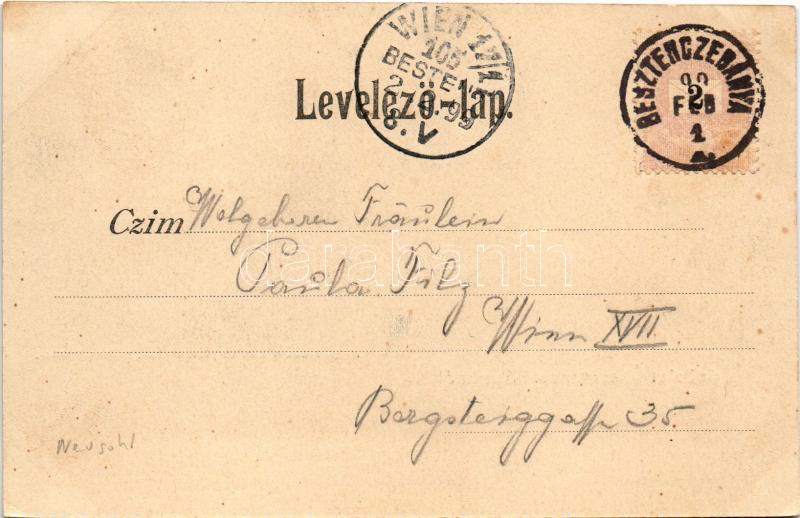 WIEN 17/1
105
BESTELLT
2.2.99
8.V
BESZTERCZEBÁNYA
99
FEB
1
2
Levelező-lap.
Czim Wolgeboren Fräulein
Paula Filz
Wien XVII
Bergsteiggasse 35
Neusohl
darabanth